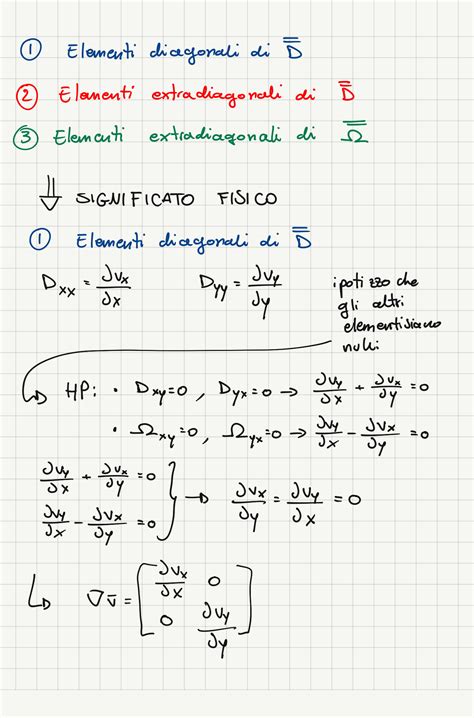 ① Elementi diagonali di D̿
② Elementi extradiagonali di D̿
③ Elementi extradiagonali di Ω̿
⇓ SIGNIFICATO FISICO
① Elementi diagonali di D̿
Dxx = ∂vx/∂x    Dyy = ∂vy/∂y    ipotizzo che
gli altri
elementi siano
nulli
↳ HP: • Dxy=0, Dyx=0 → ∂vy/∂x + ∂vx/∂y = 0
• Ωxy=0, Ωyx=0 → ∂vy/∂x - ∂vx/∂y = 0
∂vy/∂x + ∂vx/∂y = 0
∂vy/∂x - ∂vx/∂y = 0 } → ∂vx/∂y = ∂vy/∂x = 0
↳ ∇v̄ = [∂vx/∂x 0
0 ∂vy/∂y]